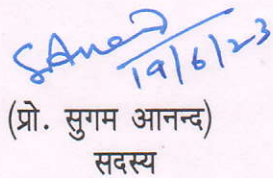 S.Anand
19/6/23
(प्रो. सुगम आनन्द)
सदस्य